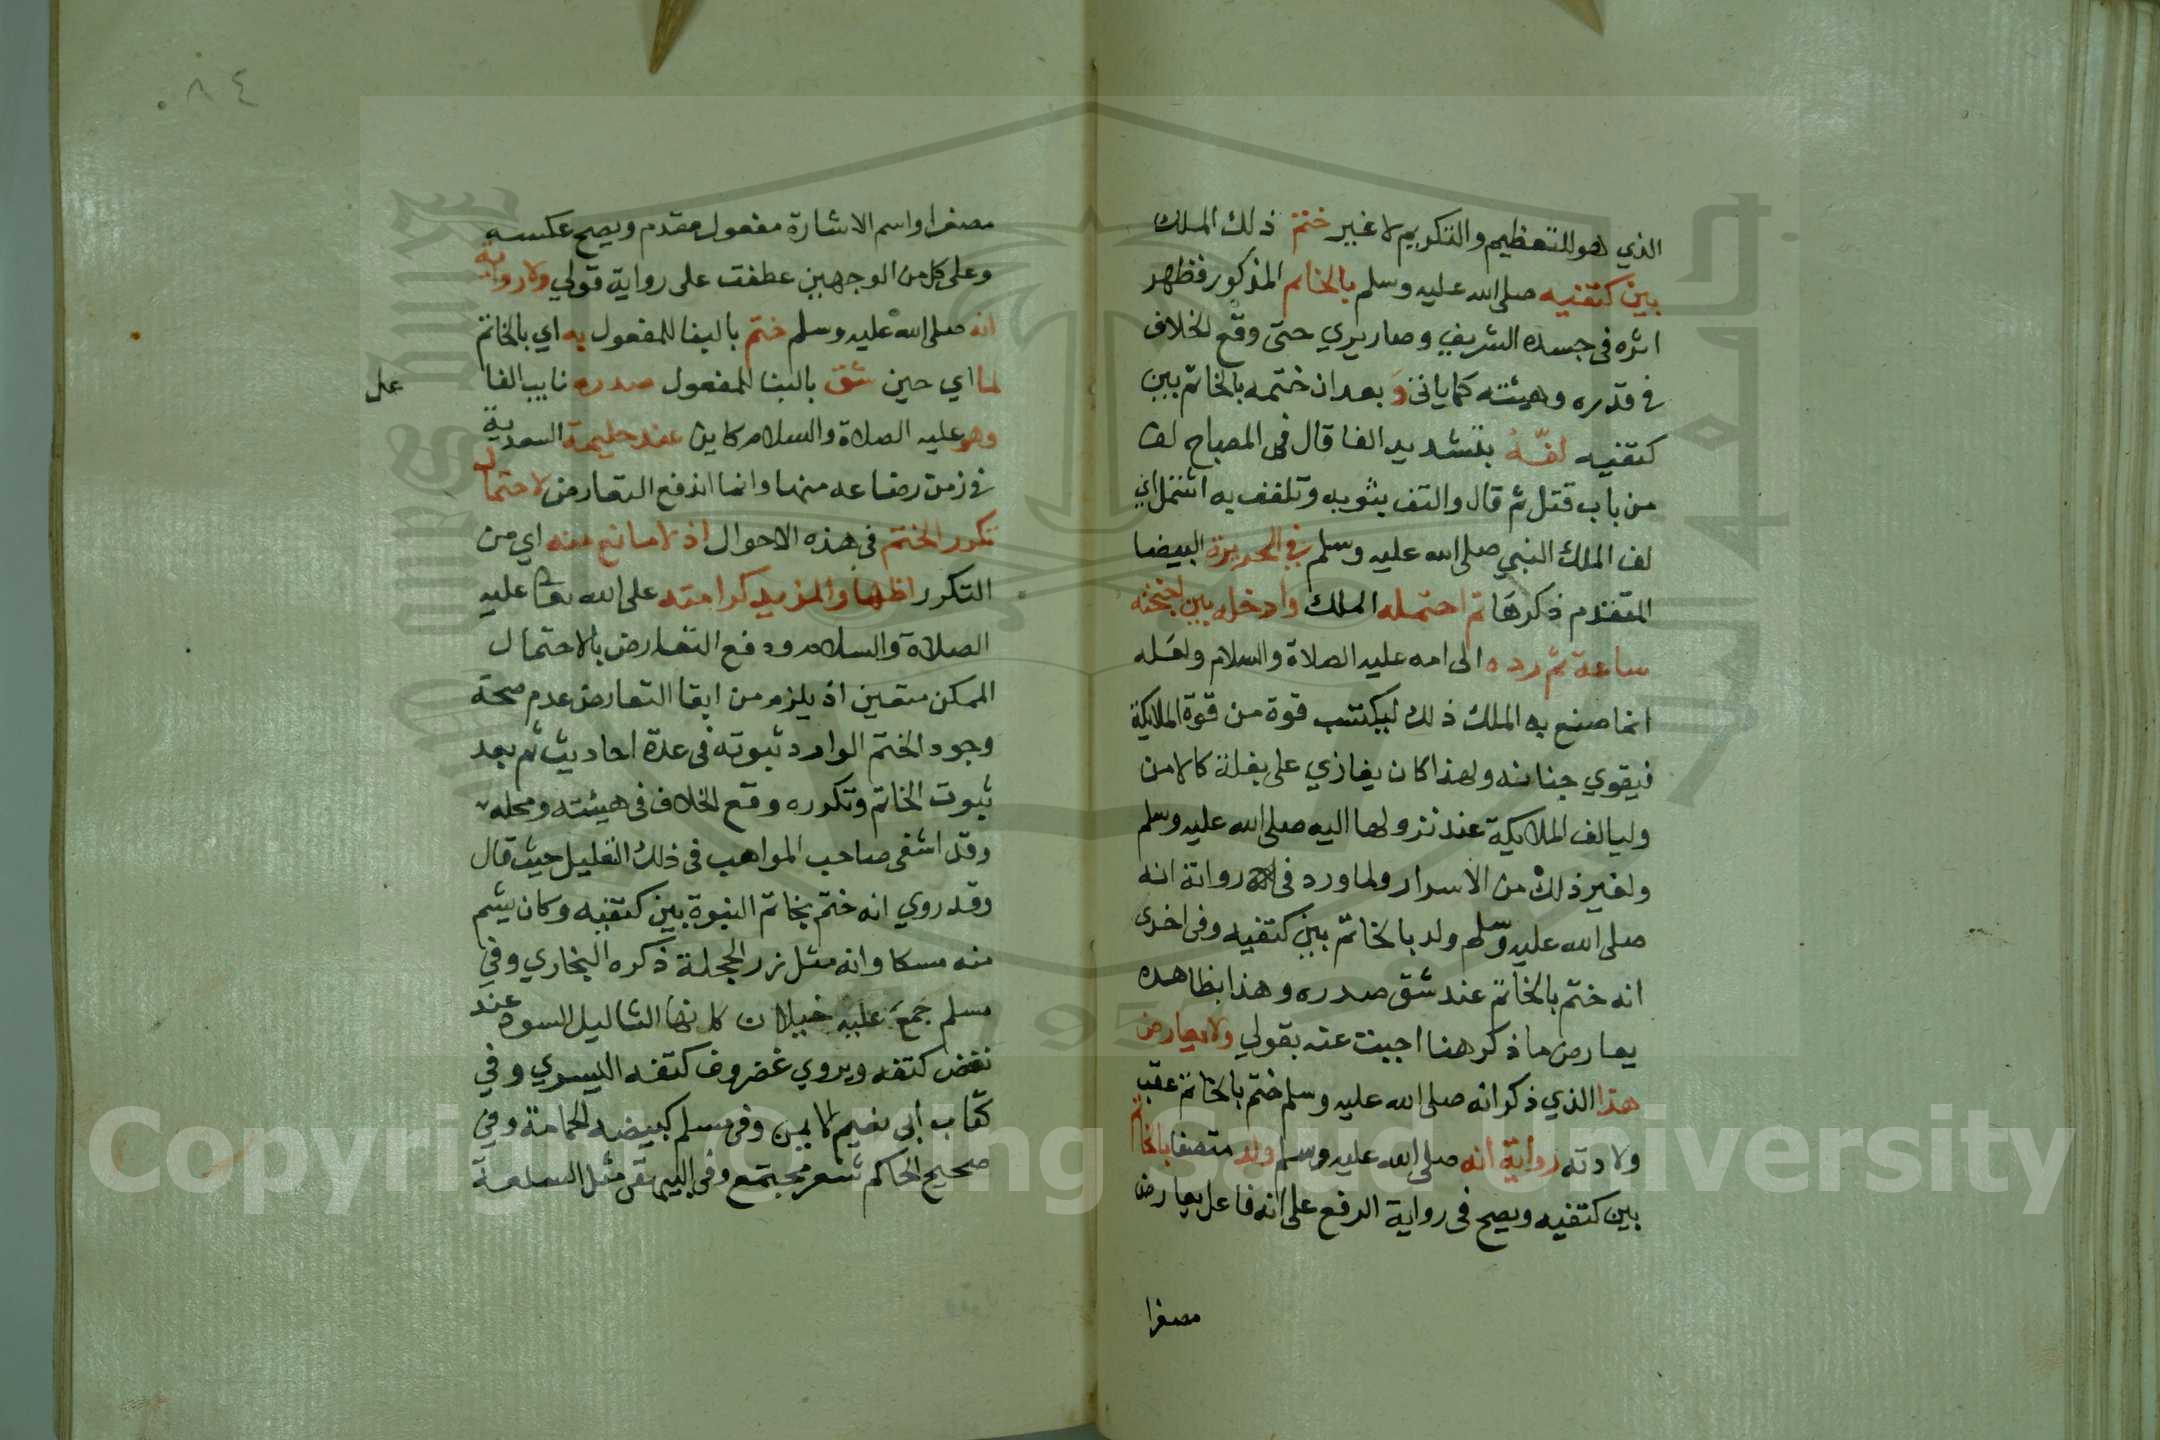 الذي هو للتعظيم والتكريم لا غير ختم ذلك الملك
بين كتفيه صلى الله عليه وسلم بالخاتم المذكور فظهر
اثره في جسده الشريف وصار يري حتى وقع الخلاف
في قدره وهيئته كما ياتي و بعد ان ختمه بالخاتم بين
كتفيه لفّهُ بتشديد الفا قال في المصباح لف
من باب قتل ثم قال والتف بثوبه وتلفف به اشتمل اي
لف الملك النبي صلى الله عليه وسلم في الحريرة البيضا
المتقدم ذكرها ثم احتمله الملك وادخله بين اجنحته
ساعة ثم رده الى امه عليه الصلاة والسلام ولعله
انما صنع به الملك ذلك ليكتسب قوة من قوة الملايكة
فيقوي جنانه ولهذا كان يغازي على بغلة كالامن
وليالف الملايكة عند نزولها اليه صلى الله عليه وسلم
ولغير ذلك من الاسرار ولما ورد في رواتة انه
صلى الله عليه وسلم ولد بالخاتم بين كتفيه وفى اخرى
انه ختم بالخاتم عند شق صدره وهذا بظاهره
يعارض ما ذكر هنا اجبت عنه بقولي ولا يعارض
هذا الذي ذكر انه صلى الله عليه وسلم ختم بالخاتم عقب
ولادته رواية انه صلى الله عليه وسلم ولد متصفا بالخاتم
بين كتفيه ويصح فى رواية الرفع على انه فاعل يعارض
مصغرا
٠٨٤
مصغرا واسم الاشارة مفعول مقدم ويصح عكسه
وعلى كل من الوجهين عطفت على رواية قولي ولا رواية
انه صلى الله عليه وسلم ختم بالبنا للمفعول به اي بالخاتم
لما اي حين شق بالبنا للمفعول صدره نايب الفا
عل
وهو عليه الصلاة والسلام كاين عند حليمة السعدية
في زمن رضاعه منها وانما اندفع التعارض لاحتمال
تكرر الختم في هذه الاحوال اذ لا مانع منه اي من
التكرر اظهارا لمزيد كرامته على الله تعا عليه
الصلاة والسلام ودفع التعارض بالاحتمال
الممكن متعين اذ يلزم من ابقا التعارض عدم صحة
وجود الختم الوارد ثبوته فى عدة احاديث ثم بعد
ثبوت الخاتم وتكرره وقع الخلاف فى هيئته ومحله
وقد اشفى صاحب المواهب فى ذلك الغليل حيث قال
وقد روي انه ختم بخاتم النبوة بين كتفيه وكان يشم
منه مسكا وانه مثل زر الحجلة ذكره البخاري وفي
مسلم جمع عليه خيلان كانها الثاليل السود عند
نغض كتفه ويروي غضروف كتفه اليسري وفي
كتاب أبى نعيم الايمن وفى مسلم كبيضه الحمامة وفي
صحيح الحاكم شعر مجتمع وفى البيهقى مثل السلعة
Copyright © King Saud University